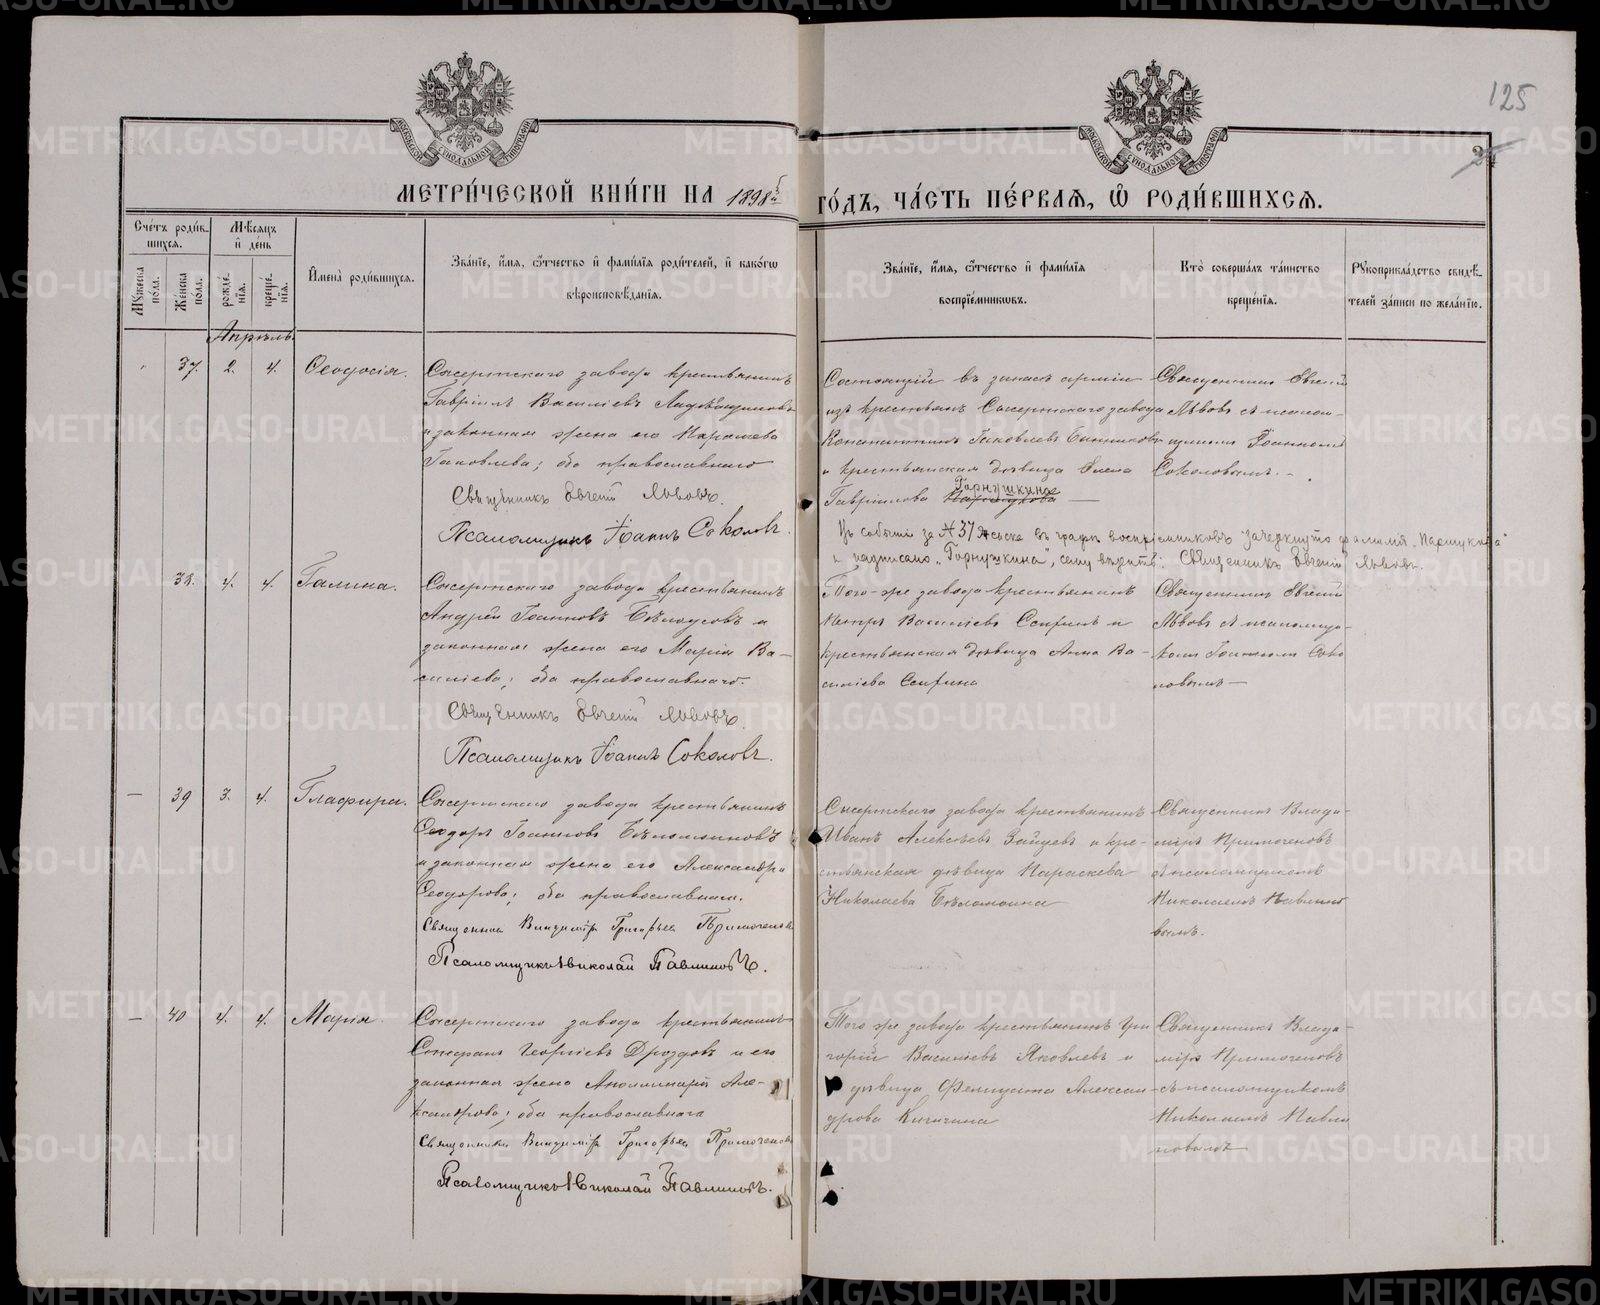 125
МЕТРИ́ЧЕСКОЙ КНИ́ГИ НА 1898й ГО́ДЪ, ЧА́СТЬ ПЕ́РВАѦ, Ѡ РОДИ́ВШИХСѦ.
Сче́тъ роди́в-
шихсѧ.
Мѣ́сѧцъ
и҆ де́нь
Мꙋ́жеска по́ла.
Же́нска по́ла.
рожде́-
нїѧ.
креще́-
нїѧ.
И҆мена̀ роди́вшихсѧ.
Зва́нїе, и҆́мѧ, ѻ҆́тчество и҆ фами́лїѧ роди́телей, и҆ како́гѡ
вѣроисповѣ́данїѧ.
Зва́нїе, и҆́мѧ, ѻ҆́тчество и҆ фами́лїѧ
воспрїе́мникѡвъ.
Кто̀ соверша́лъ та́инство
креще́нїѧ.
Рꙋкоприкла́дство свидѣ́-
телей за́писи по жела́нїю.
Апрѣль
37. 2. 4. Ѳеодосія.
Сысертскаго завода крестьянинъ
Гавріилъ Василіевъ
и законная жена его Параскева
Іаковлева; оба православнаго
Священникъ Евгеній Львовъ.
Псаломщикъ Іоаннъ Соколовъ.
Состоящій въ запасѣ арміи
изъ крестьянъ Сысертскаго завода
Константинъ Іаковлевъ Банниковъ
и крестьянская дѣвица Елена
Горнушкина
Гавріилова
Священникъ Евгеній
Львовъ съ псалом-
щикомъ Іоанномъ
Соколовымъ.
Въ событіи за № 37 женска въ графѣ воспріемниковъ зачеркнуто фамилія „Паршукова"
и надписано „Горнушкина", сему вѣрить: Священникъ Евгеній Львовъ.
38. 4. 4. Галина.
Сысертскаго завода крестьянинъ
Андрей Іоанновъ Бѣлоусовъ и
законная жена его Марія Ва-
силіева; оба православнаго.
Священникъ Евгеній Львовъ.
Псаломщикъ Іоаннъ Соколовъ.
Того-же завода крестьянинъ
Петръ Василіевъ и
крестьянская дѣвица Анна Ва-
силіева
Священникъ Евгеній
Львовъ съ псаломщи-
комъ Іоанномъ Соко
ловымъ —
— 39 3. 4. Глафира.
Сысертскаго завода крестьянинъ
Ѳеодоръ Іоанновъ
и законная жена его Александра
Ѳеодорова; оба православнаго.
Священникъ Владиміръ Григорьевъ Примогеновъ
Псаломщикъ Николай Павлиновъ.
Сысертскаго завода крестьянинъ
Иванъ Алексѣевъ Зайцевъ и кре-
стьянская дѣвица Параскева
Николаева
Священникъ Влади-
міръ Примогеновъ
съ псаломщикомъ
Николаемъ Павлино
вымъ.
— 40 4. 4. Марія.
Сысертскаго завода крестьянинъ
Стефанъ Георгіевъ Дроздовъ и его
законная жена Аполлинарія Але-
ксандрова; оба православнаго
Священникъ Владиміръ Григорьевъ Примогеновъ
Псаломщикъ Николай Павлиновъ.
Того же завода крестьянинъ Гри
горій Василіевъ Яковлевъ и
дѣвица Фелицата Алексан-
дрова Кичигина
Священникъ Влади-
міръ Примогеновъ
съ псаломщикомъ
Николаемъ Павли
новымъ
METRIKI.GASO-URAL.RU